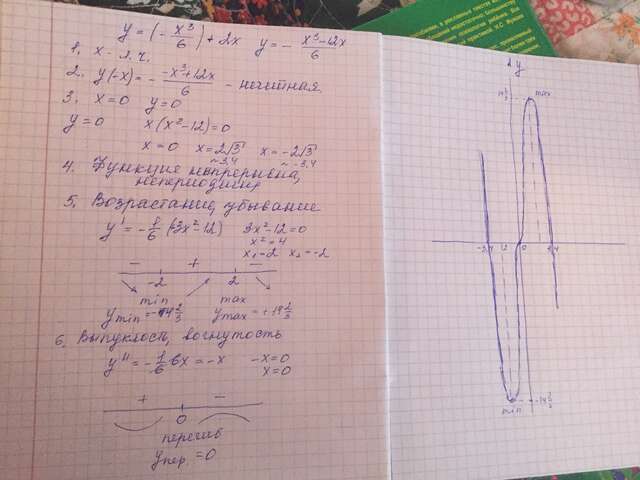 y = (- x³/6) + 2x   y = - x³-12x/6
1. x - л.ч.
2. y(-x) = - -x³+12x/6 - нечетная
3. x=0   y=0
y=0   x(x²-12)=0
x=0   x=2√3   x=-2√3
~3,4   ~-3,4
4. Функция непрерывна,
непериодична
5. Возрастание, убывание
y' = -1/6 (3x²-12)   3x²-12=0
x²=4
x₁=2   x₂=-2
-   +   -
-2   2
min   max
y min = -14 2/3   y max = +14 2/3
6. Выпуклость, вогнутость
y'' = -1/6 · 6x = -x   -x=0
x=0
+   -
0
перегиб
y пер. = 0
y
14 2/3   max
-3,4   -2   0   3,4
-14 2/3
min